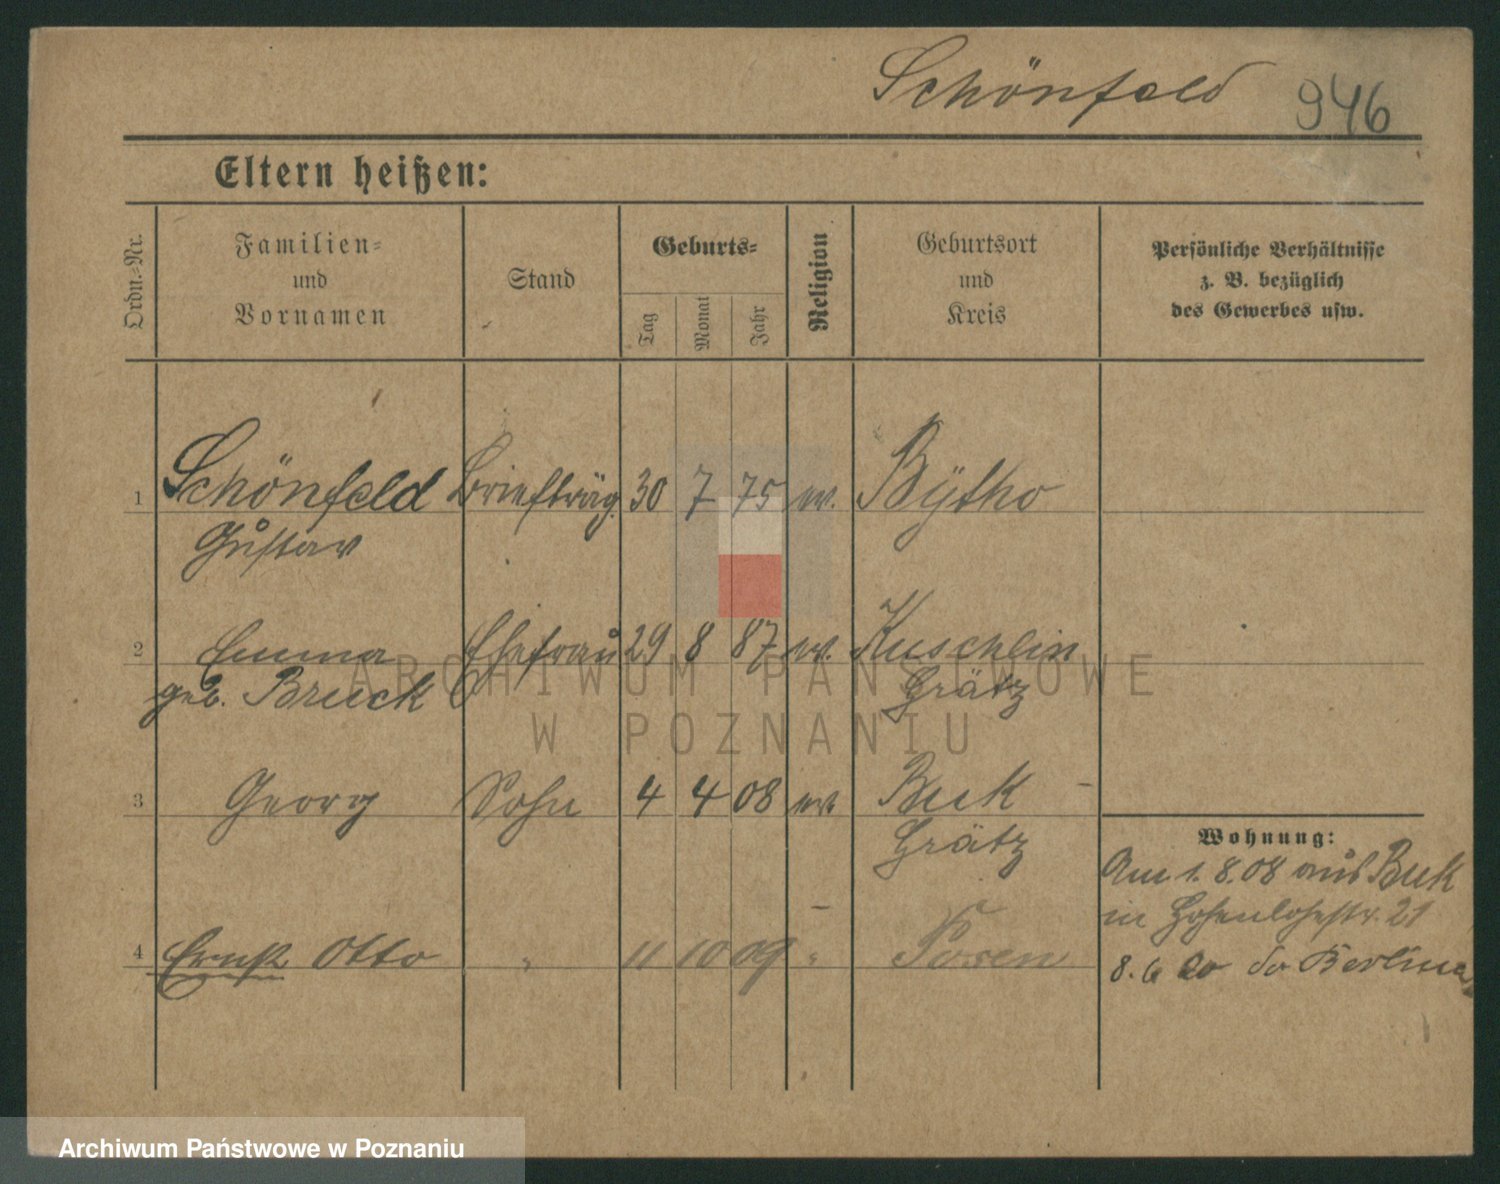 Schönfeld 946
Eltern heißen:
Ordn.=Nr.
Familien=
und
Vornamen
Stand
Geburts=
Tag
Monat
Jahr
Religion
Geburtsort
und
Kreis
Persönliche Verhältnisse
z. B. bezüglich
des Gewerbes usw.
1 Schönfeld Briefträg. 30 7 75 ev. Bÿtho
Gustav
2 Emma Ehefrau 29 8 87 ev. Kuschlin
geb. Bruck Grätz
3 Georg Sohn 4 4 08 ev Buk
Grätz
Wohnung:
Am 1. 8. 08 aus Buk
in Hohenlohestr. 21
4 Ernst Otto " 11 10 09 " Posen
8. 6
ARCHIWUM PAŃSTWOWE
W POZNANIU
Archiwum Państwowe w Poznaniu